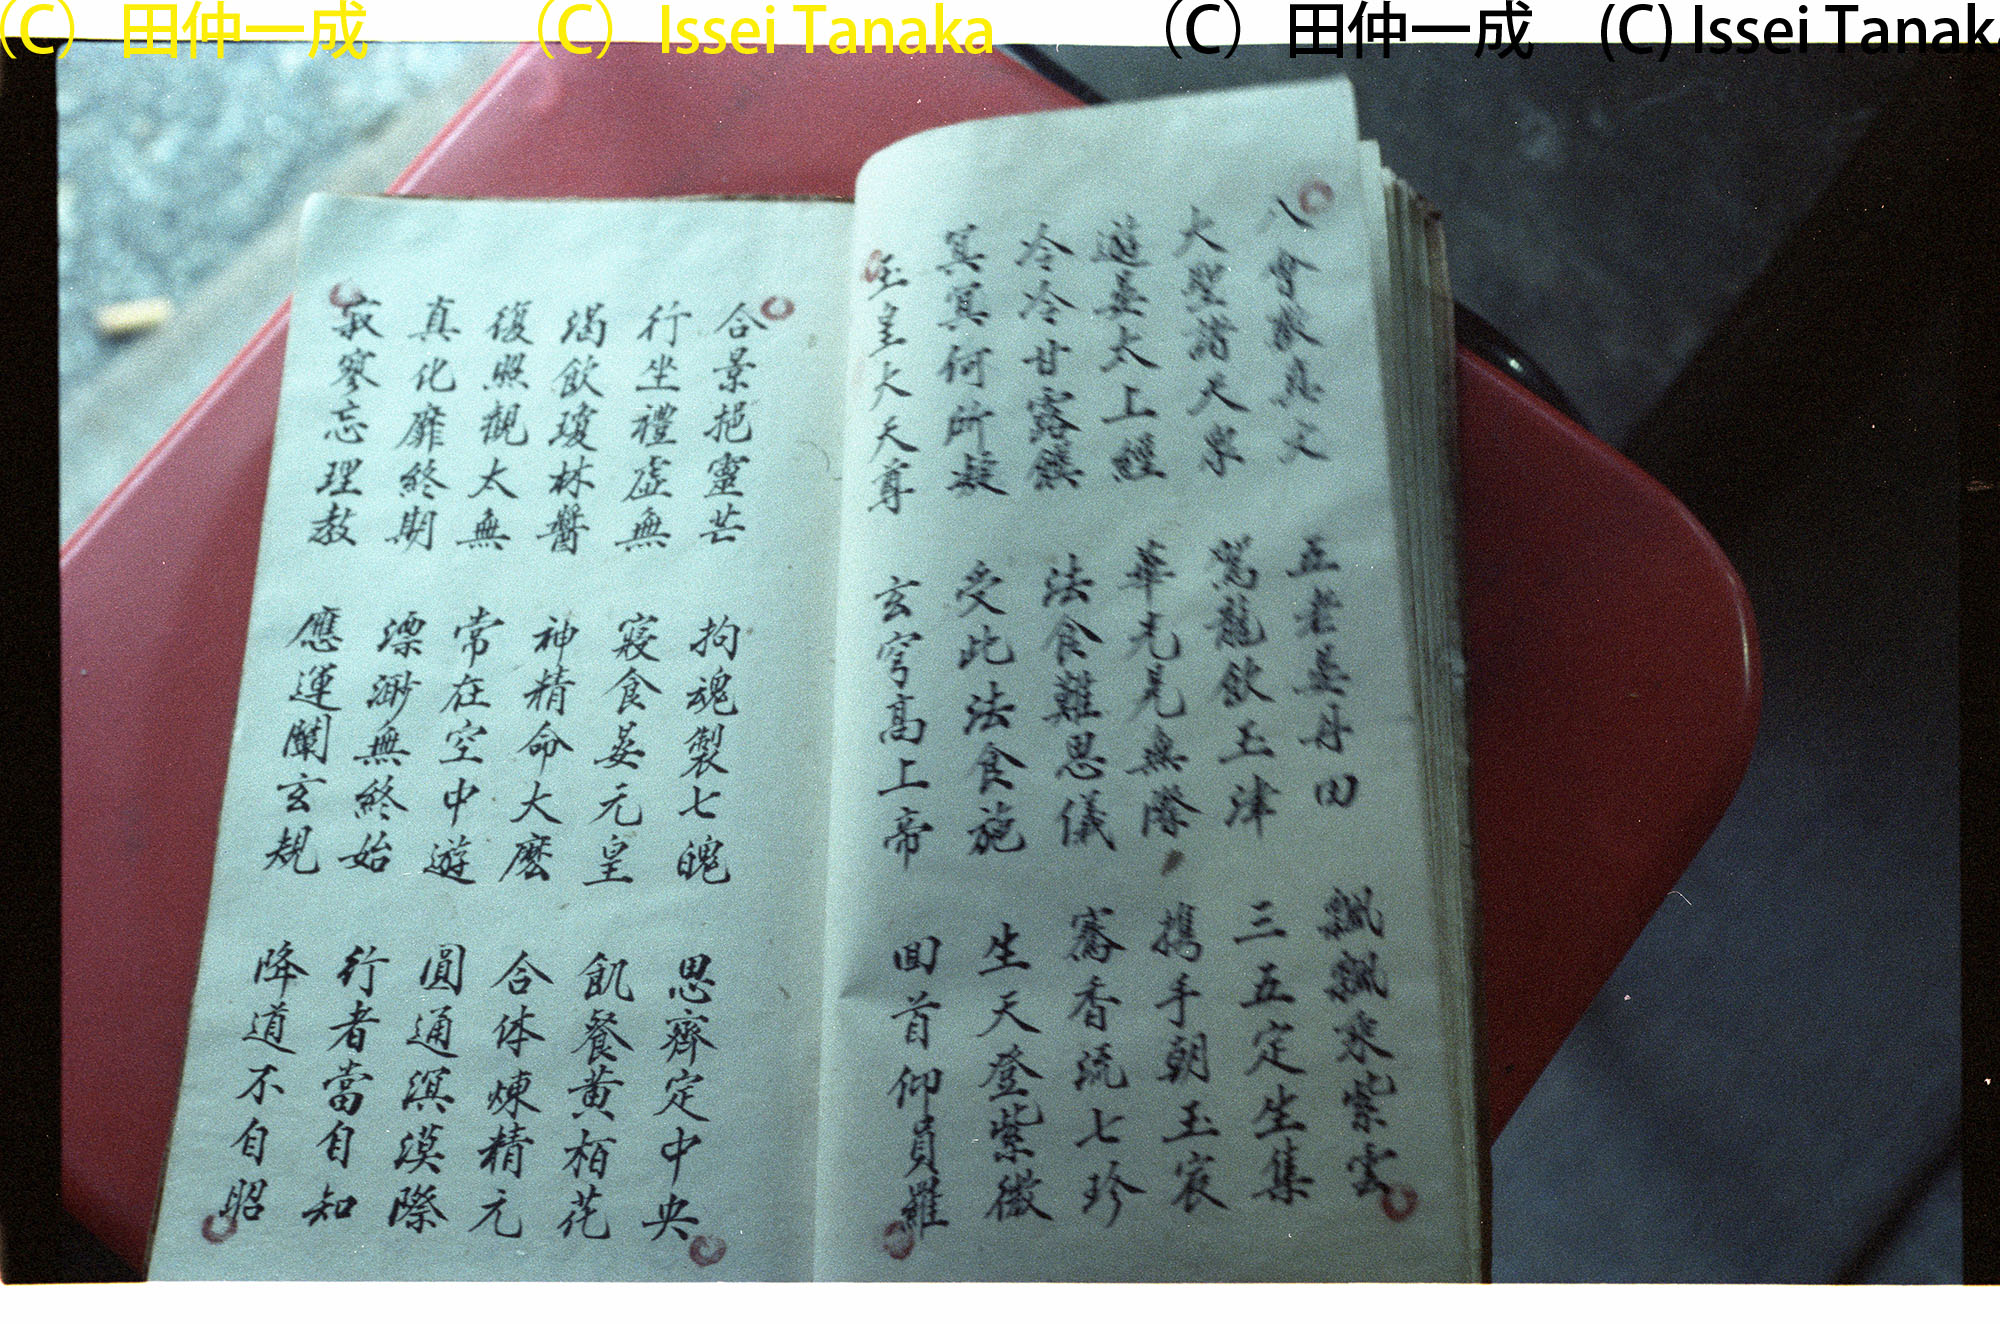 (C) 田仲一成 (C) Issei Tanaka (C) 田仲一成 (C) Issei Tanaka
八會敷真文 五老晏丹田 飄飄乘紫雲
大聖諸天眾 駕龍飲玉津 三五定生集
遊晏太上經 華光見無際 携手朝玉宸
冷冷甘露饌 法食難思儀 騫香流七珍
冥冥何所凝 受此法食施 生天登紫微
玉皇大天尊 玄穹高上帝 回首仰員羅
合景挹靈芒 拘魂製七魄 思齊定中央
行坐禮虛無 寢食晏元皇 飢餐黃栢花
渴飲瓊林醬 神精命大麽 合体煉精元
復照觀太無 常在空中遊 圓通溟漠際
真化靡終期 漂渺無終始 行者當自知
寂寥忘理教 應運闡玄規 降道不自昭